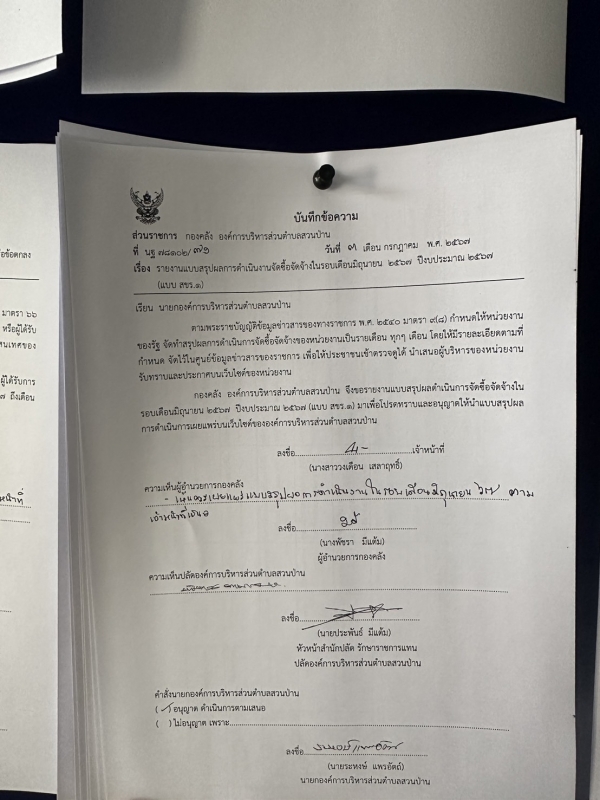 บันทึกข้อความ
ส่วนราชการ กองคลัง องค์การบริหารส่วนตำบลสวนป่าน
ที่ นฐ ๗๘๓๐๒/ วันที่ ๓ เดือน กรกฎาคม พ.ศ. ๒๕๖๗
เรื่อง รายงานแบบสรุปผลการดำเนินงานจัดซื้อจัดจ้างในรอบเดือนมิถุนายน ๒๕๖๗ ปีงบประมาณ ๒๕๖๗
(แบบ สขร.๑)
เรียน นายกองค์การบริหารส่วนตำบลสวนป่าน
ตามพระราชบัญญัติข้อมูลข่าวสารของทางราชการ พ.ศ. ๒๕๔๐ มาตรา ๙(๘) กำหนดให้หน่วยงาน
ของรัฐ จัดทำสรุปผลการดำเนินการจัดซื้อจัดจ้างของหน่วยงานเป็นรายเดือน ทุกๆ เดือน โดยให้มีรายละเอียดตามที่
กำหนด จัดไว้ในศูนย์ข้อมูลข่าวสารของราชการ เพื่อให้ประชาชนเข้าตรวจดูได้ นำเสนอผู้บริหารของหน่วยงาน
รับทราบและประกาศบนเว็บไซต์ของหน่วยงาน
กองคลัง องค์การบริหารส่วนตำบลสวนป่าน จึงขอรายงานแบบสรุปผลดำเนินการจัดซื้อจัดจ้างใน
รอบเดือนมิถุนายน ๒๕๖๗ ปีงบประมาณ ๒๕๖๗ (แบบ สขร.๑) มาเพื่อโปรดทราบและอนุญาตให้นำแบบสรุปผล
การดำเนินการเผยแพร่บนเว็บไซต์ขององค์การบริหารส่วนตำบลสวนป่าน
ลงชื่อ เจ้าหน้าที่
(นางสาววงเดือน เสลาฤทธิ์)
ความเห็นผู้อำนวยการกองคลัง
- เห็นควรเผยแพร่แบบสรุปผลการดำเนินงานในรอบเดือนมิถุนายน ๖๗ ตาม
เจ้าหน้าที่เสนอ
ลงชื่อ
(นางพัชรา มีแต้ม)
ผู้อำนวยการกองคลัง
ความเห็นปลัดองค์การบริหารส่วนตำบลสวนป่าน
ลงชื่อ
(นายประพันธ์ มีแต้ม)
หัวหน้าสำนักปลัด รักษาราชการแทน
ปลัดองค์การบริหารส่วนตำบลสวนป่าน
คำสั่งนายกองค์การบริหารส่วนตำบลสวนป่าน
(✓) อนุญาต ดำเนินการตามเสนอ
( ) ไม่อนุญาต เพราะ
ลงชื่อ
(นายระหงษ์ แพรอัตถ์)
นายกองค์การบริหารส่วนตำบลสวนป่าน
มาตรา ๖๖
หรือผู้ได้รับ
ผู้ได้รับการ
๗ ถึงเดือน